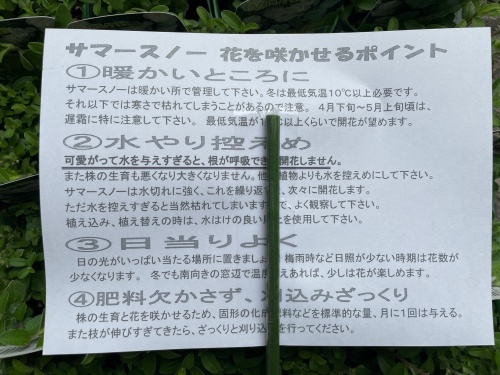 サマースノー 花を咲かせるポイント
①暖かいところに
サマースノーは暖かい所で管理して下さい。冬は最低気温10℃以上必要です。
それ以下では寒さで枯れてしまうことがあるので注意。 4月下旬～5月上旬頃は、
遅霜に特に注意して下さい。 最低気温が1 ℃以上くらいで開花が望めます。
②水やり控えめ
可愛がって水を与えすぎると、根が呼吸でき 開花しません。
また株の生育も悪くなり大きくなりません。他 植物よりも水を控えめにして下さい。
サマースノーは水切れに強く、これを繰り返 、次々に開花します。
ただ水を控えすぎると当然枯れてしまいます で、よく観察して下さい。
植え込み、植え替えの時は、水はけの良い を使用して下さい。
③日当りよく
日の光がいっぱい当たる場所に置きましょ 梅雨時など日照が少ない時期は花数が
少なくなります。 冬でも南向きの窓辺で温度 えあれば、少しは花が楽しめます。
④肥料欠かさず、刈込みざっくり
株の生育と花を咲かせるため、固形の化成肥料などを標準的な量、月に1回は与える。
また枝が伸びすぎてきたら、ざっくりと刈り込 を行ってください。